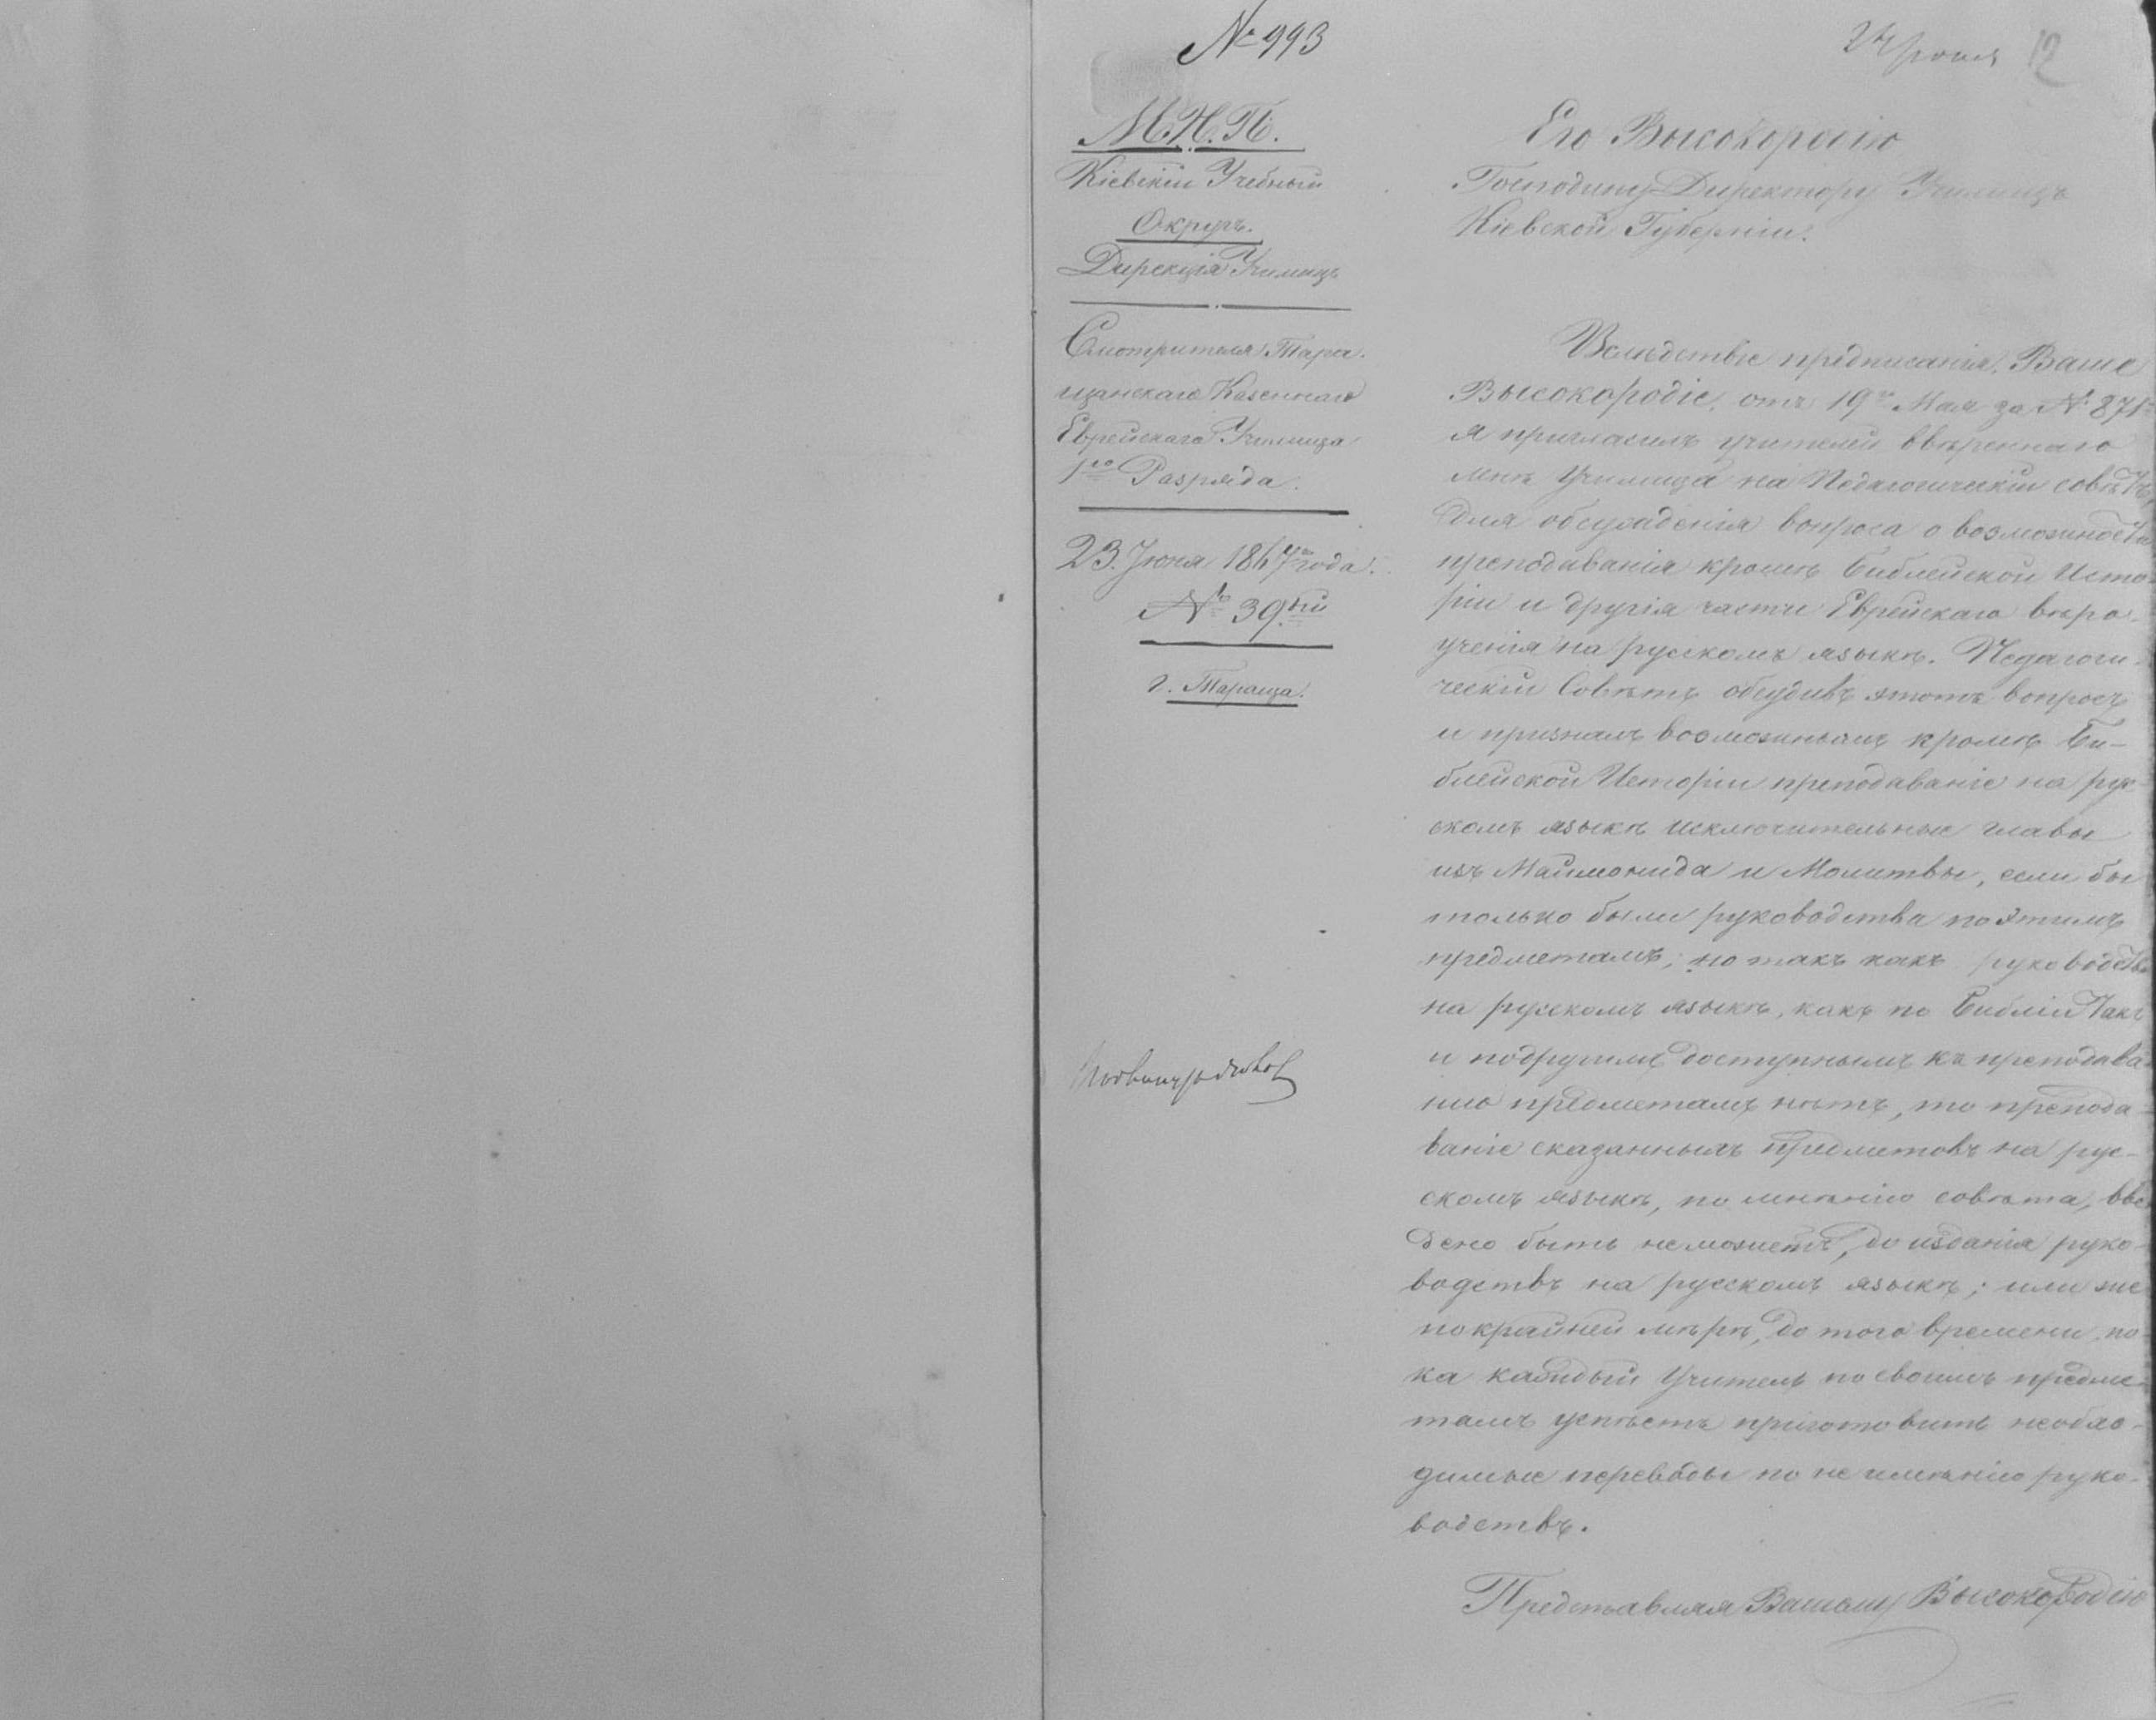 № 993
12
М.Н.П.
Кіевскій Учебный
Округъ.
Дирекція Училищъ
Смотрителя Тара-
щанскаго Казеннаго
Еврейскаго Училища
1го Разряда.
23. Іюня 1867 года.
№ 39ый
г. Тараща.
Его Высокородію
Господину Директору Училищъ
Кіевской Губерніи.
Вслѣдствіе предписанія, Ваше
Высокородіе, отъ 19го Мая за № 871
я пригласилъ учителей ввѣреннаго
мнѣ Училища на Педагогическій совѣтъ,
для обсужденія вопроса о возможности
преподаванія кромѣ Библейской Исто-
ріи и другія части Еврейскаго вѣро-
ученія на русскомъ языкѣ. Педагоги-
ческій Совѣтъ обсудивъ этотъ вопросъ
и призналъ возможнымъ кромѣ Би-
блейской Исторіи преподаваніе на рус-
скомъ языкѣ исключительные главы
изъ Маймонида и Молитвы, если бы
только были руководства по этимъ
предметамъ; но такъ какъ руководствъ
на русскомъ языкѣ, какъ по Библіи такъ
и подругимъ доступнымъ къ преподава-
нію предметамъ нѣтъ, то препода-
ваніе сказанныхъ предметовъ на рус-
скомъ языкѣ, по мнѣнію совѣта, вве-
дено быть неможетъ, до изданія руко-
водствъ на русскомъ языкѣ; или же
покрайней мѣрѣ, до того времени по-
ка каждый Учитель по своимъ предме-
тамъ успѣетъ приготовить необхо-
димые переводы по не имѣнію руко-
водствъ.
Представляя Вашему Высокородію